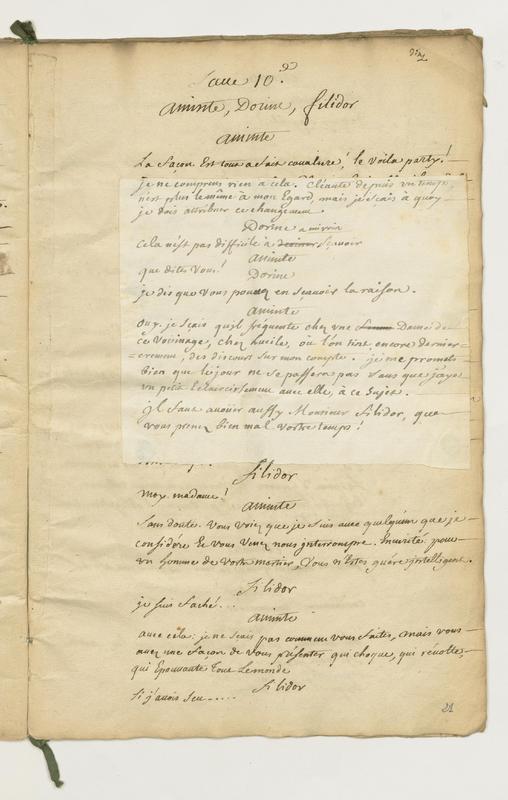 Scene 10.e
Aminte, Dorine, filidor
Aminte
La façon Est tout a fait cavaliere! le voila party!
je ne comprens rien a cela. Cléante depuis un temps,
n'est plus le même a mon Egard, mais je sçais a quoy
je dois attribuer ce changement.
Dorine a mi voix
Cela n'est pas difficile à sçavoir
Aminte
que dites vous!
Dorine
je dis que vous pouvez en sçavoir la raison.
Aminte
Ouy. je sçais quil fréquente chez une Dame de
ce Voisinage, chez lucile, où l'on tint, encore dernier-
=erement, des discours sur mon compte. je me promets
bien que le jour ne se passera pas sans que j'aye
un petit Eclaircissement avec elle, à ce sujet.
jl faut avoüer aussy Monsieur filidor, que
vous prenez bien mal vostre temps!
filidor
moy madame!
Aminte
Sans doute. Vous voiez que je suis avec quelqu'un que je
considère Et vous venez nous jnterrompre. En vérité pour
un homme de vostre mestier, vous n'Estes guére jntelligent.
filidor
je suis faché...
Aminte
avec cela: je ne sçais pas comment vous faites, mais vous
avez une façon de vous présenter qui choque, qui révolte
qui Epouvante Tout Le monde
filidor
Si j'avois sçu.....
21